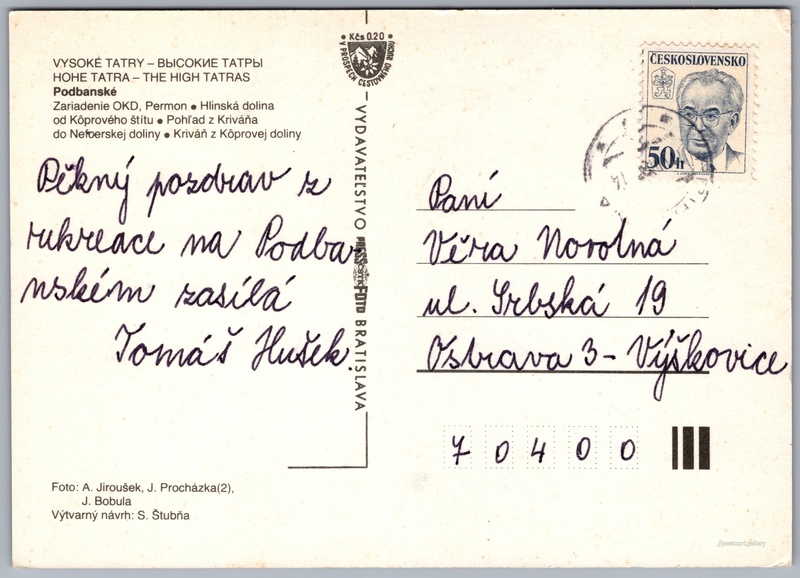 VYSOKÉ TATRY – ВЫСОКИЕ ТАТРЫ
HOHE TATRA – THE HIGH TATRAS
Podbanské
Zariadenie OKD, Permon • Hlinská dolina
od Kôprového štítu • Pohľad z Kriváňa
do Nefcerskej doliny • Kriváň z Kôprovej doliny
Pěkný pozdrav z
rukreace na Podba-
nském zasílá
Tomáš Hušek.
Kčs 0.20
V PROSPECH CESTOVNÉHO RUCHU
VYDAVATEĽSTVO PRESSFOTO BRATISLAVA
ČESKOSLOVENSKO
50 h
Paní
Věra Novotná
ul. Srbská 19
Ostrava 3 – Výškovice
7 0 4 0 0
Foto: A. Jiroušek, J. Procházka(2),
J. Bobula
Výtvarný návrh: S. Štubňa